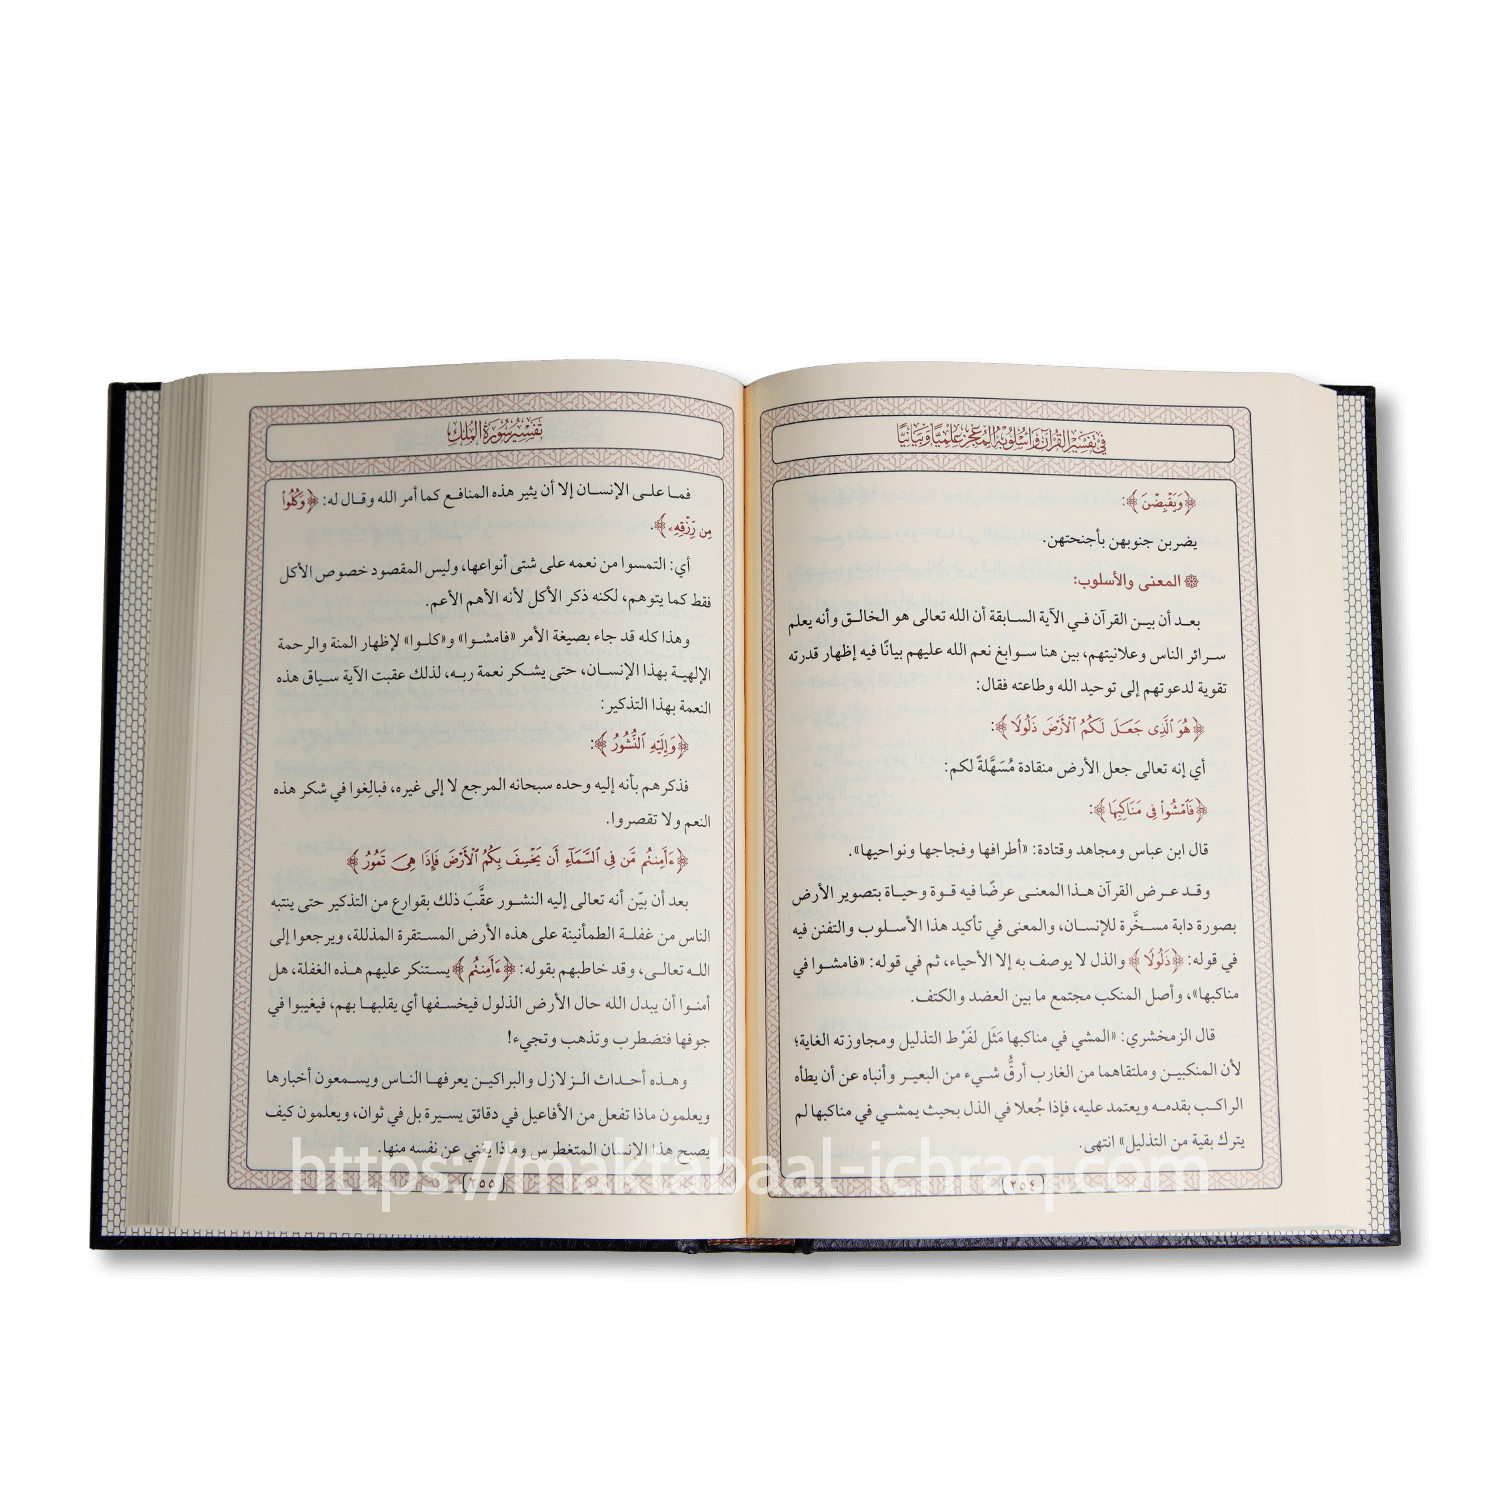 في تفسير القرآن وأسلوبه المعجز علميًا وبيانيًا
﴿وَيَقْبِضْنَ﴾:
يضربن جنوبهن بأجنحتهن.
المعنى والأسلوب:
بعد أن بين القرآن في الآية السابقة أن الله تعالى هو الخالق وأنه يعلم
سرائر الناس وعلانيتهم، بين هنا سوابغ نعم الله عليهم بيانًا فيه إظهار قدرته
تقوية لدعوتهم إلى توحيد الله وطاعته فقال:
﴿هُوَ ٱلَّذِى جَعَلَ لَكُمُ ٱلْأَرْضَ ذَلُولًا﴾:
أي إنه تعالى جعل الأرض منقادة مُسَهَّلةً لكم:
﴿فَٱمْشُوا۟ فِى مَنَاكِبِهَا﴾:
قال ابن عباس ومجاهد وقتادة: «أطرافها وفجاجها ونواحيها».
وقد عرض القرآن هذا المعنى عرضًا فيه قوة وحياة بتصوير الأرض
بصورة دابة مسخَّرة للإنسان، والمعنى في تأكيد هذا الأسلوب والتفنن فيه
في قوله: ﴿ذَلُولًا﴾ والذل لا يوصف به إلا الأحياء، ثم في قوله: «فامشوا في
مناكبها»، وأصل المنكب مجتمع ما بين العضد والكتف.
قال الزمخشري: «المشي في مناكبها مَثَل لفَرْط التذليل ومجاوزته الغاية؛
لأن المنكبين وملتقاهما من الغارب أرقُّ شيء من البعير وأنباه عن أن يطأه
الراكب بقدمه ويعتمد عليه، فإذا جُعلا في الذل بحيث يمشي في مناكبها لم
يترك بقية من التذليل» انتهى.
٢٥٤
تفسير سورة الملك
فما على الإنسان إلا أن يثير هذه المنافع كما أمر الله وقال له: ﴿وَكُلُوا۟
مِن رِّزْقِهِۦ﴾.
أي: التمسوا من نعمه على شتى أنواعها، وليس المقصود خصوص الأكل
فقط كما يتوهم، لكنه ذكر الأكل لأنه الأهم الأعم.
وهذا كله قد جاء بصيغة الأمر «فامشوا» و«كلوا» لإظهار المنة والرحمة
الإلهية بهذا الإنسان، حتى يشكر نعمة ربه، لذلك عقبت الآية سياق هذه
النعمة بهذا التذكير:
﴿وَإِلَيْهِ ٱلنُّشُورُ﴾:
فذكرهم بأنه إليه وحده سبحانه المرجع لا إلى غيره، فبالِغوا في شكر هذه
النعم ولا تقصروا.
﴿ءَأَمِنتُم مَّن فِى ٱلسَّمَآءِ أَن يَخْسِفَ بِكُمُ ٱلْأَرْضَ فَإِذَا هِىَ تَمُورُ﴾
بعد أن بيّن أنه تعالى إليه النشور عقَّبَ ذلك بقوارع من التذكير حتى ينتبه
الناس من غفلة الطمأنينة على هذه الأرض المستقرة المذللة، ويرجعوا إلى
الله تعالى، وقد خاطبهم بقوله: ﴿ءَأَمِنتُم﴾ يستنكر عليهم هذه الغفلة، هل
أمنوا أن يبدل الله حال الأرض الذلول فيخسفها أي يقلبها بهم، فيغيبوا في
جوفها فتضطرب وتذهب وتجيء!
وهذه أحداث الزلازل والبراكين يعرفها الناس ويسمعون أخبارها
ويعلمون ماذا تفعل من الأفاعيل في دقائق يسيرة بل في ثوان، ويعلمون كيف
يصبح هذا الإنسان المتغطرس وماذا يغني عن نفسه منها.
٢٥٥
https://maktabaal-ichraq.com